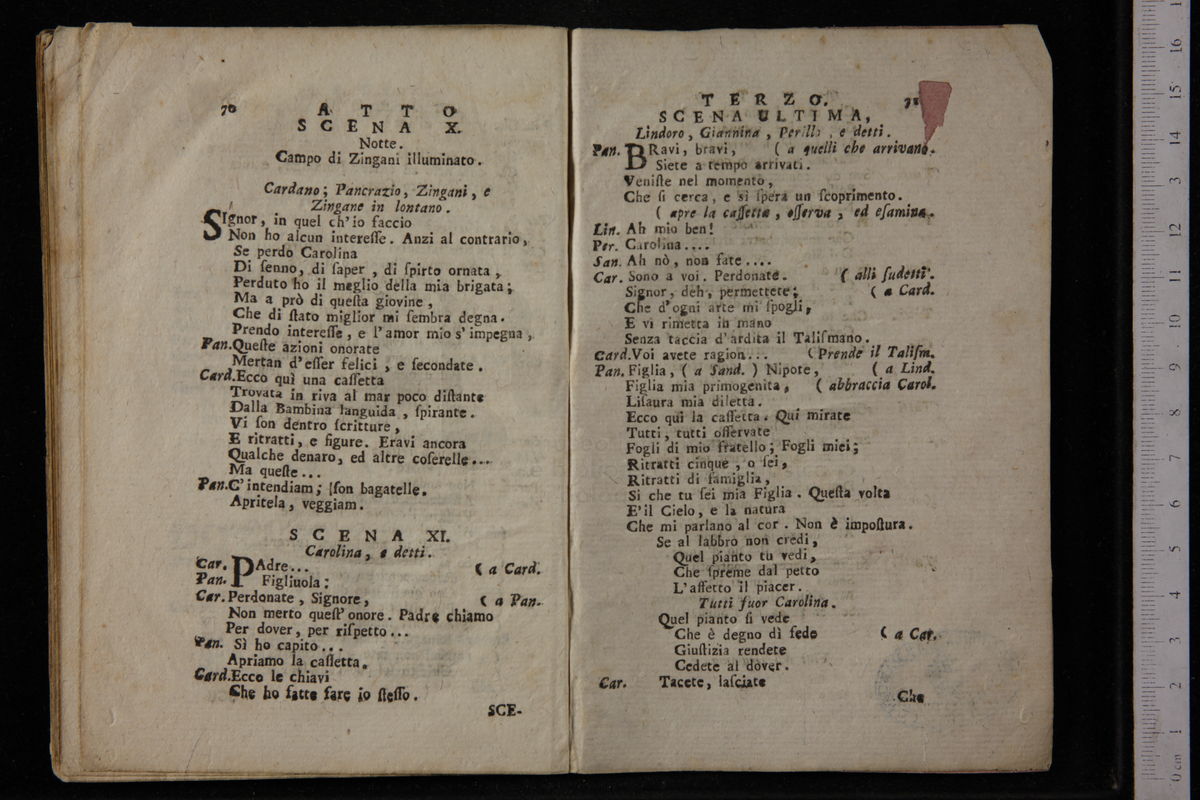 70 ATTO
SCENA X.
Notte.
Campo di Zingani illuminato.
Cardano; Pancrazio, Zingani, e
Zingane in lontano.
SIgnor, in quel ch'io faccio
Non ho alcun intereſſe. Anzi al contrario,
Se perdo Carolina
Di ſenno, di ſaper, di ſpirto ornata,
Perduto ho il meglio della mia brigata;
Ma a prò di queſta giovine,
Che di ſtato miglior mi ſembra degna.
Prendo intereſſe, e l'amor mio s'impegna,
Pan. Queſte azioni onorate
Mertan d'eſſer felici, e ſecondate.
Card. Ecco quì una caſſetta
Trovata in riva al mar poco diſtante
Dalla Bambina languida, ſpirante.
Vi ſon dentro ſcritture,
E ritratti, e figure. Eravi ancora
Qualche denaro, ed altre coſerelle...
Ma queſte...
Pan. C'intendiam; ſſon bagatelle.
Apritela, veggiam.
SCENA XI.
Carolina, e detti.
Car. PAdre... ( a Card.
Pan. Figliuola:
Car. Perdonate, Signore, ( a Pan.
Non merto queſt'onore. Padre chiamo
Per dover, per riſpetto...
Pan. Sì ho capito...
Apriamo la caſſetta.
Card. Ecco le chiavi
Che ho fatte fare io ſteſſo.
SCE-
TERZO. 71
SCENA ULTIMA,
Lindoro, Giannina, Perillo, e detti.
Pan. BRavi, bravi, ( a quelli che arrivano.
Siete a tempo arrivati.
Veniſte nel momento,
Che ſi cerca, e si ſpera un ſcoprimento.
( apre la caſſetta, oſſerva, ed eſamina.
Lin. Ah mio ben!
Per. Carolina....
San. Ah nò, non fate....
Car. Sono a voi. Perdonate. ( alli ſudetti.
Signor, deh, permettete; ( a Card.
Che d'ogni arte mi ſpogli,
E vi rimetta in mano
Senza taccia d'ardita il Taliſmano.
Card. Voi avete ragion... ( Prende il Taliſm.
Pan. Figlia, ( a Sand. ) Nipote, ( a Lind.
Figlia mia primogenita, ( abbraccia Carol.
Liſaura mia diletta.
Ecco quì la caſſetta. Qui mirate
Tutti, tutti oſſervate
Fogli di mio fratello; Fogli miei;
Ritratti cinque, o ſei,
Ritratti di famiglia,
Si che tu ſei mia Figlia. Queſta volta
E'il Cielo, e la natura
Che mi parlano al cor. Non è impoſtura.
Se al labbro non credi,
Quel pianto tu vedi,
Che ſpreme dal petto
L'affetto il piacer.
Tutti fuor Carolina.
Quel pianto ſi vede
Che è degno dì fede ( a Car.
Giuſtizia rendete
Cedete al dover.
Car. Tacete, laſciate
Che